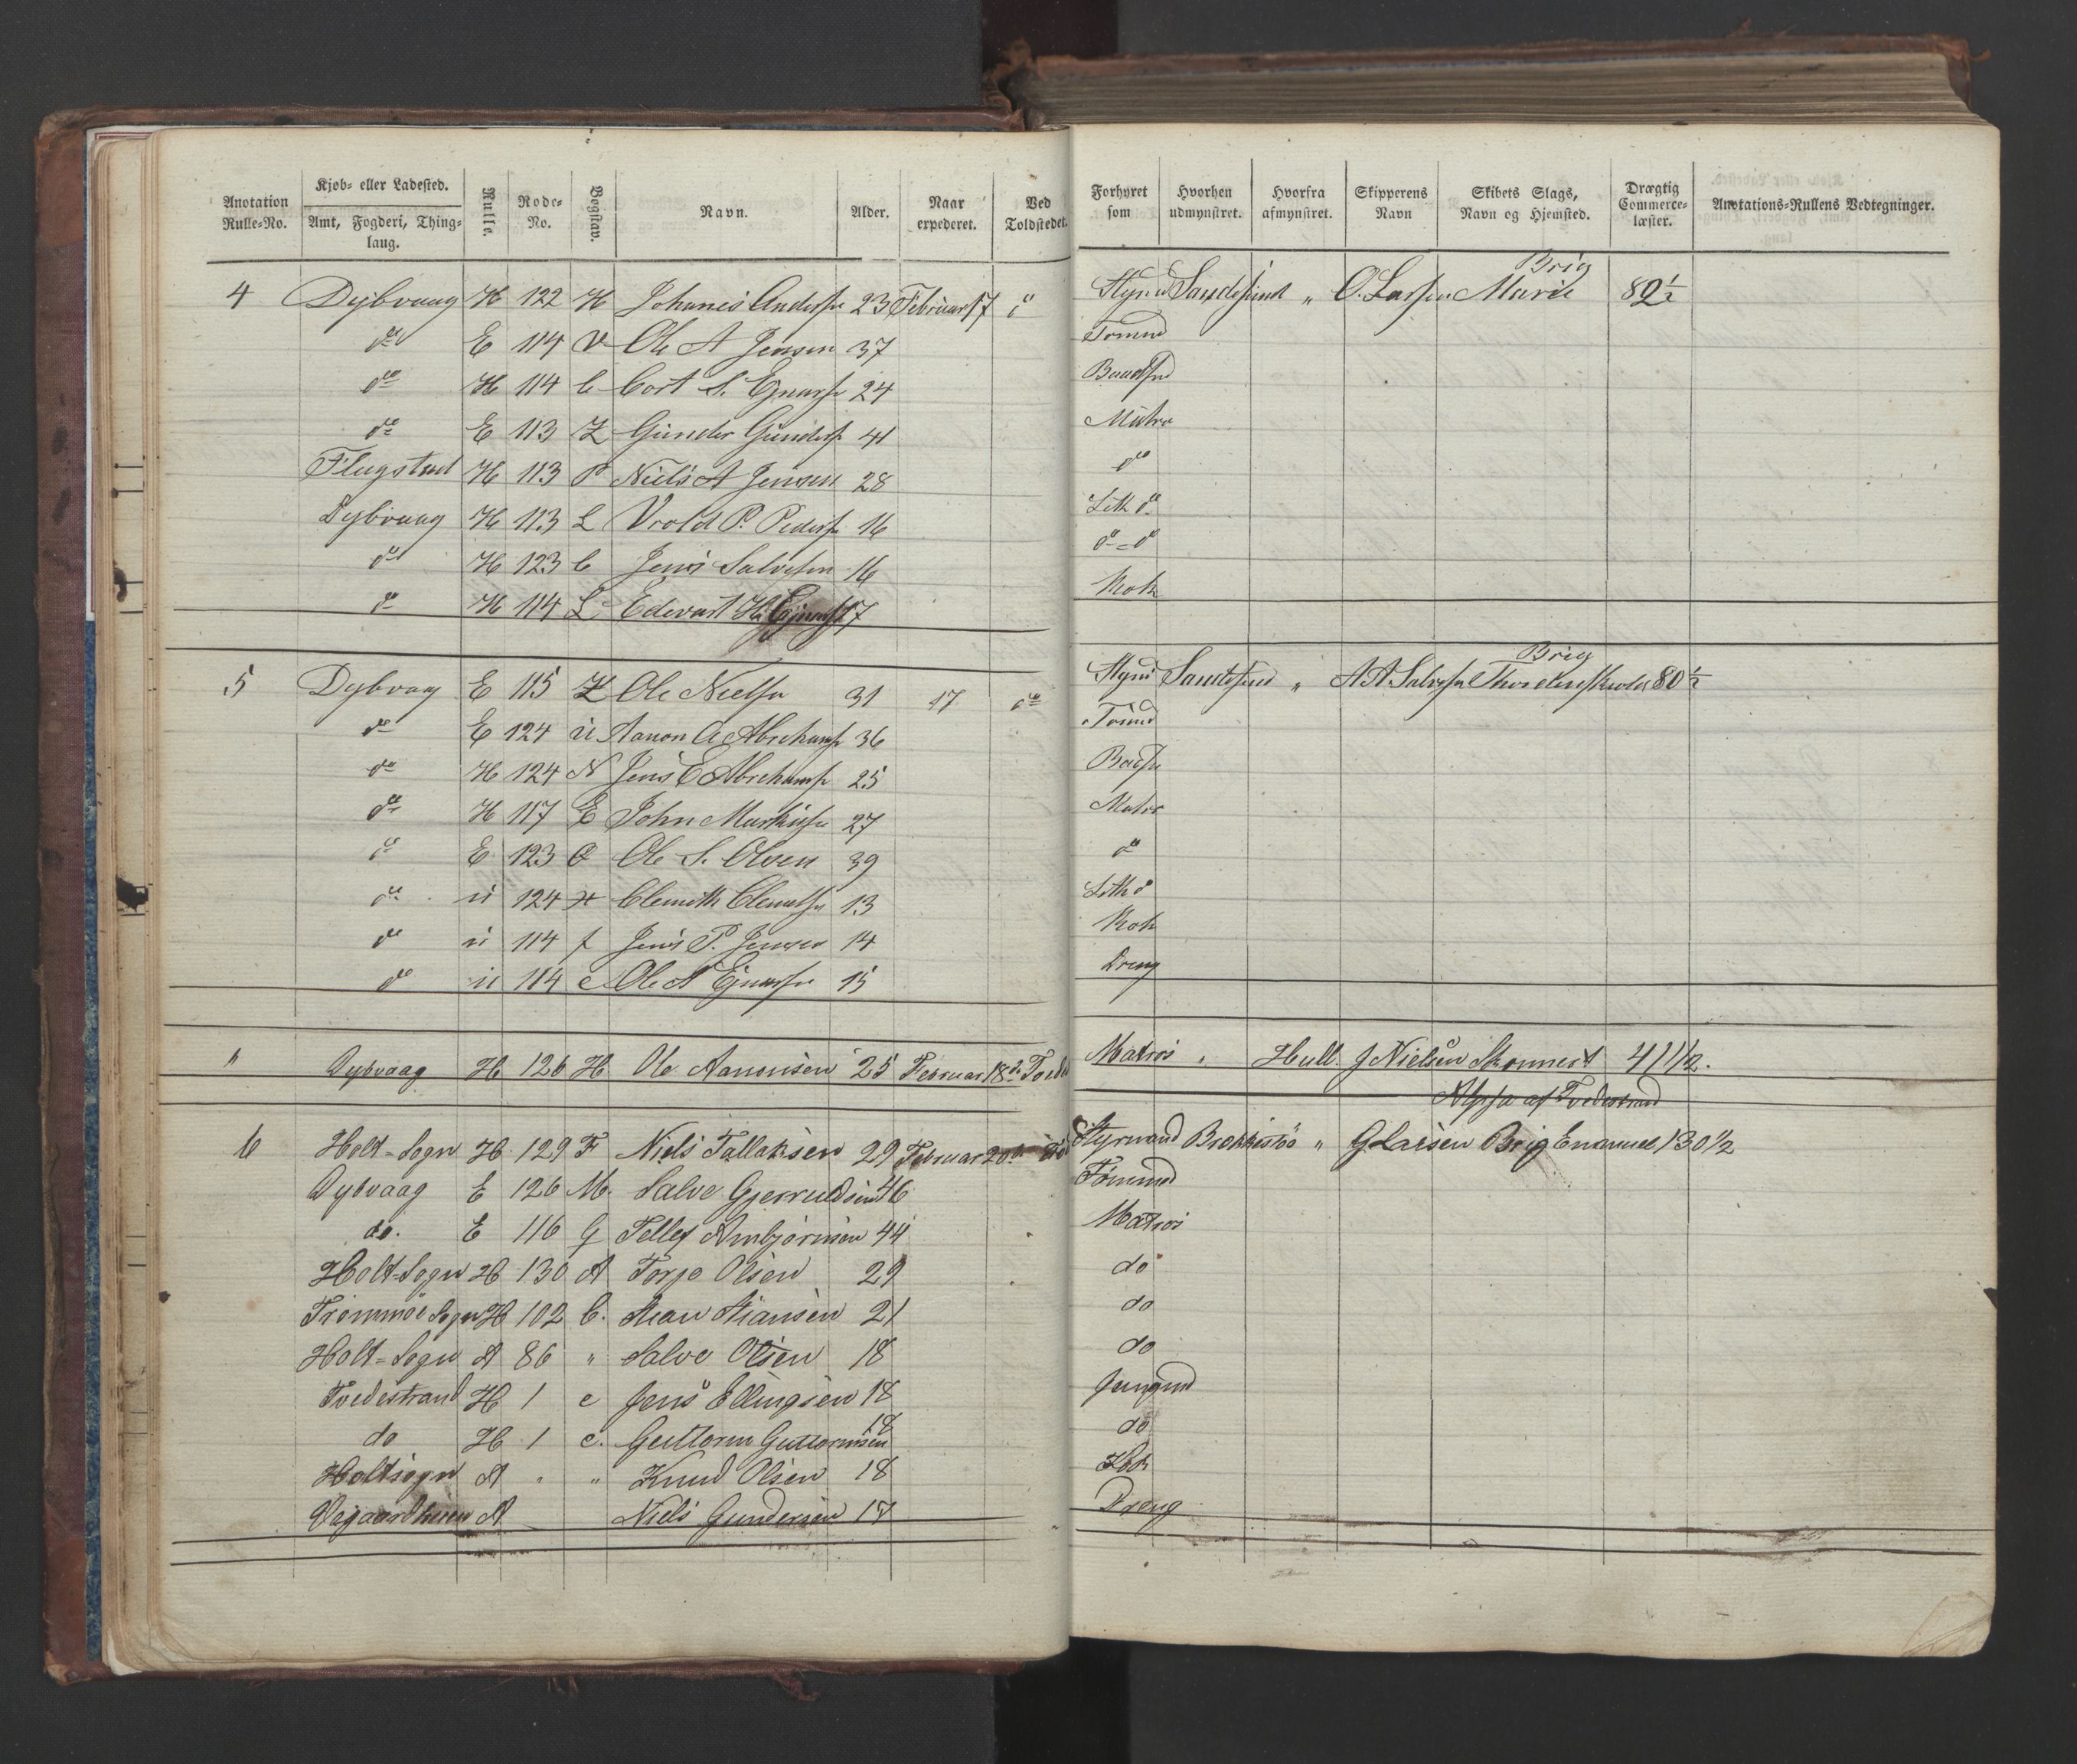 Anotation Rulle-No. | Kjøb- eller Ladested. Amt, Fogderi, Thinglaug. | Rulle. | Rode-No. | Bogstav. | Navn. | Alder. | Naar expederet. | Ved Toldstedet. | Forhyret som | Hvorhen udmynstret. | Hvorfra afmynstret. | Skipperens Navn | Skibets Slags, Navn og Hjemsted. | Drægtig Commerce-læster. | Anotations-Rullens Vedtegninger.
4 Dybvaag H 122 H Johanes Anders 23 Februar 17 do Styrmd Sandesund " O. Larsen Brig Marie 82 1/2
do E 114 V Ole A Jensen 37 Tømmd
do H 114 C Cort S. 24 Baadsmd
do E 113 Z Gunder Gunders 41 Matros
Flagstad H 113 P Niels A Jensen 28 do
Dybvaag H 113 L Vrold P. Peders 16 Leth do
do H 123 C Jens Salvesen 16 do - do
do H 114 L Edevart H. 17 Kok
5 Dybvag E 115 Z Ole Nielsen 31 17 do Styrmd Sandesund " A A Salvesen Brig 80 1/2
do E 124 U Aanon A Abrehams 36 Tømmd
do H 124 N Jens E Abrehams 25 Baadsm
do H 117 E John Markusen 27 Matros
do E 123 Q Ole S. Olsen 39 do
do U 124 Clemeth Clemets 13 Leth do
do U 114 f Jens P. Jensen 14 Kok
do U 114 e Ole A 15 Dreng
" Dybvaag H 126 H Ole Aanonsen 25 Februar 18de Matros " Hull J Nielsen Skonnert 41 1/2.
Alpha af Tvedestrand
6 Holt-Sogn H 129 F Niels Tallaksen 29 Februar 20de Styrmand " G Larsen Brig Emanuel 130 1/2
Dybvaag E 126 M. Salve Gjerruldsen 46 Tømmd
do. E 116 G Tellef Ambjørnsen 44 Matros
Holt-Sogn H 130 A Torje Olsen 29 do
Tromøe Sogn H 102 C. Stian Stiansen 21 do
Holt-Sogn A 86 " Salve Olsen 18 do
Tvedestrand H 1 e Jens Ellingsen 18 Jungmd
do H 1 e. Guttorm Guttormsen 18 do
Holtsogn A " " Knud Olsen 18 Kok
Vegaardsheien A Niels Gundersen 17 Dreng